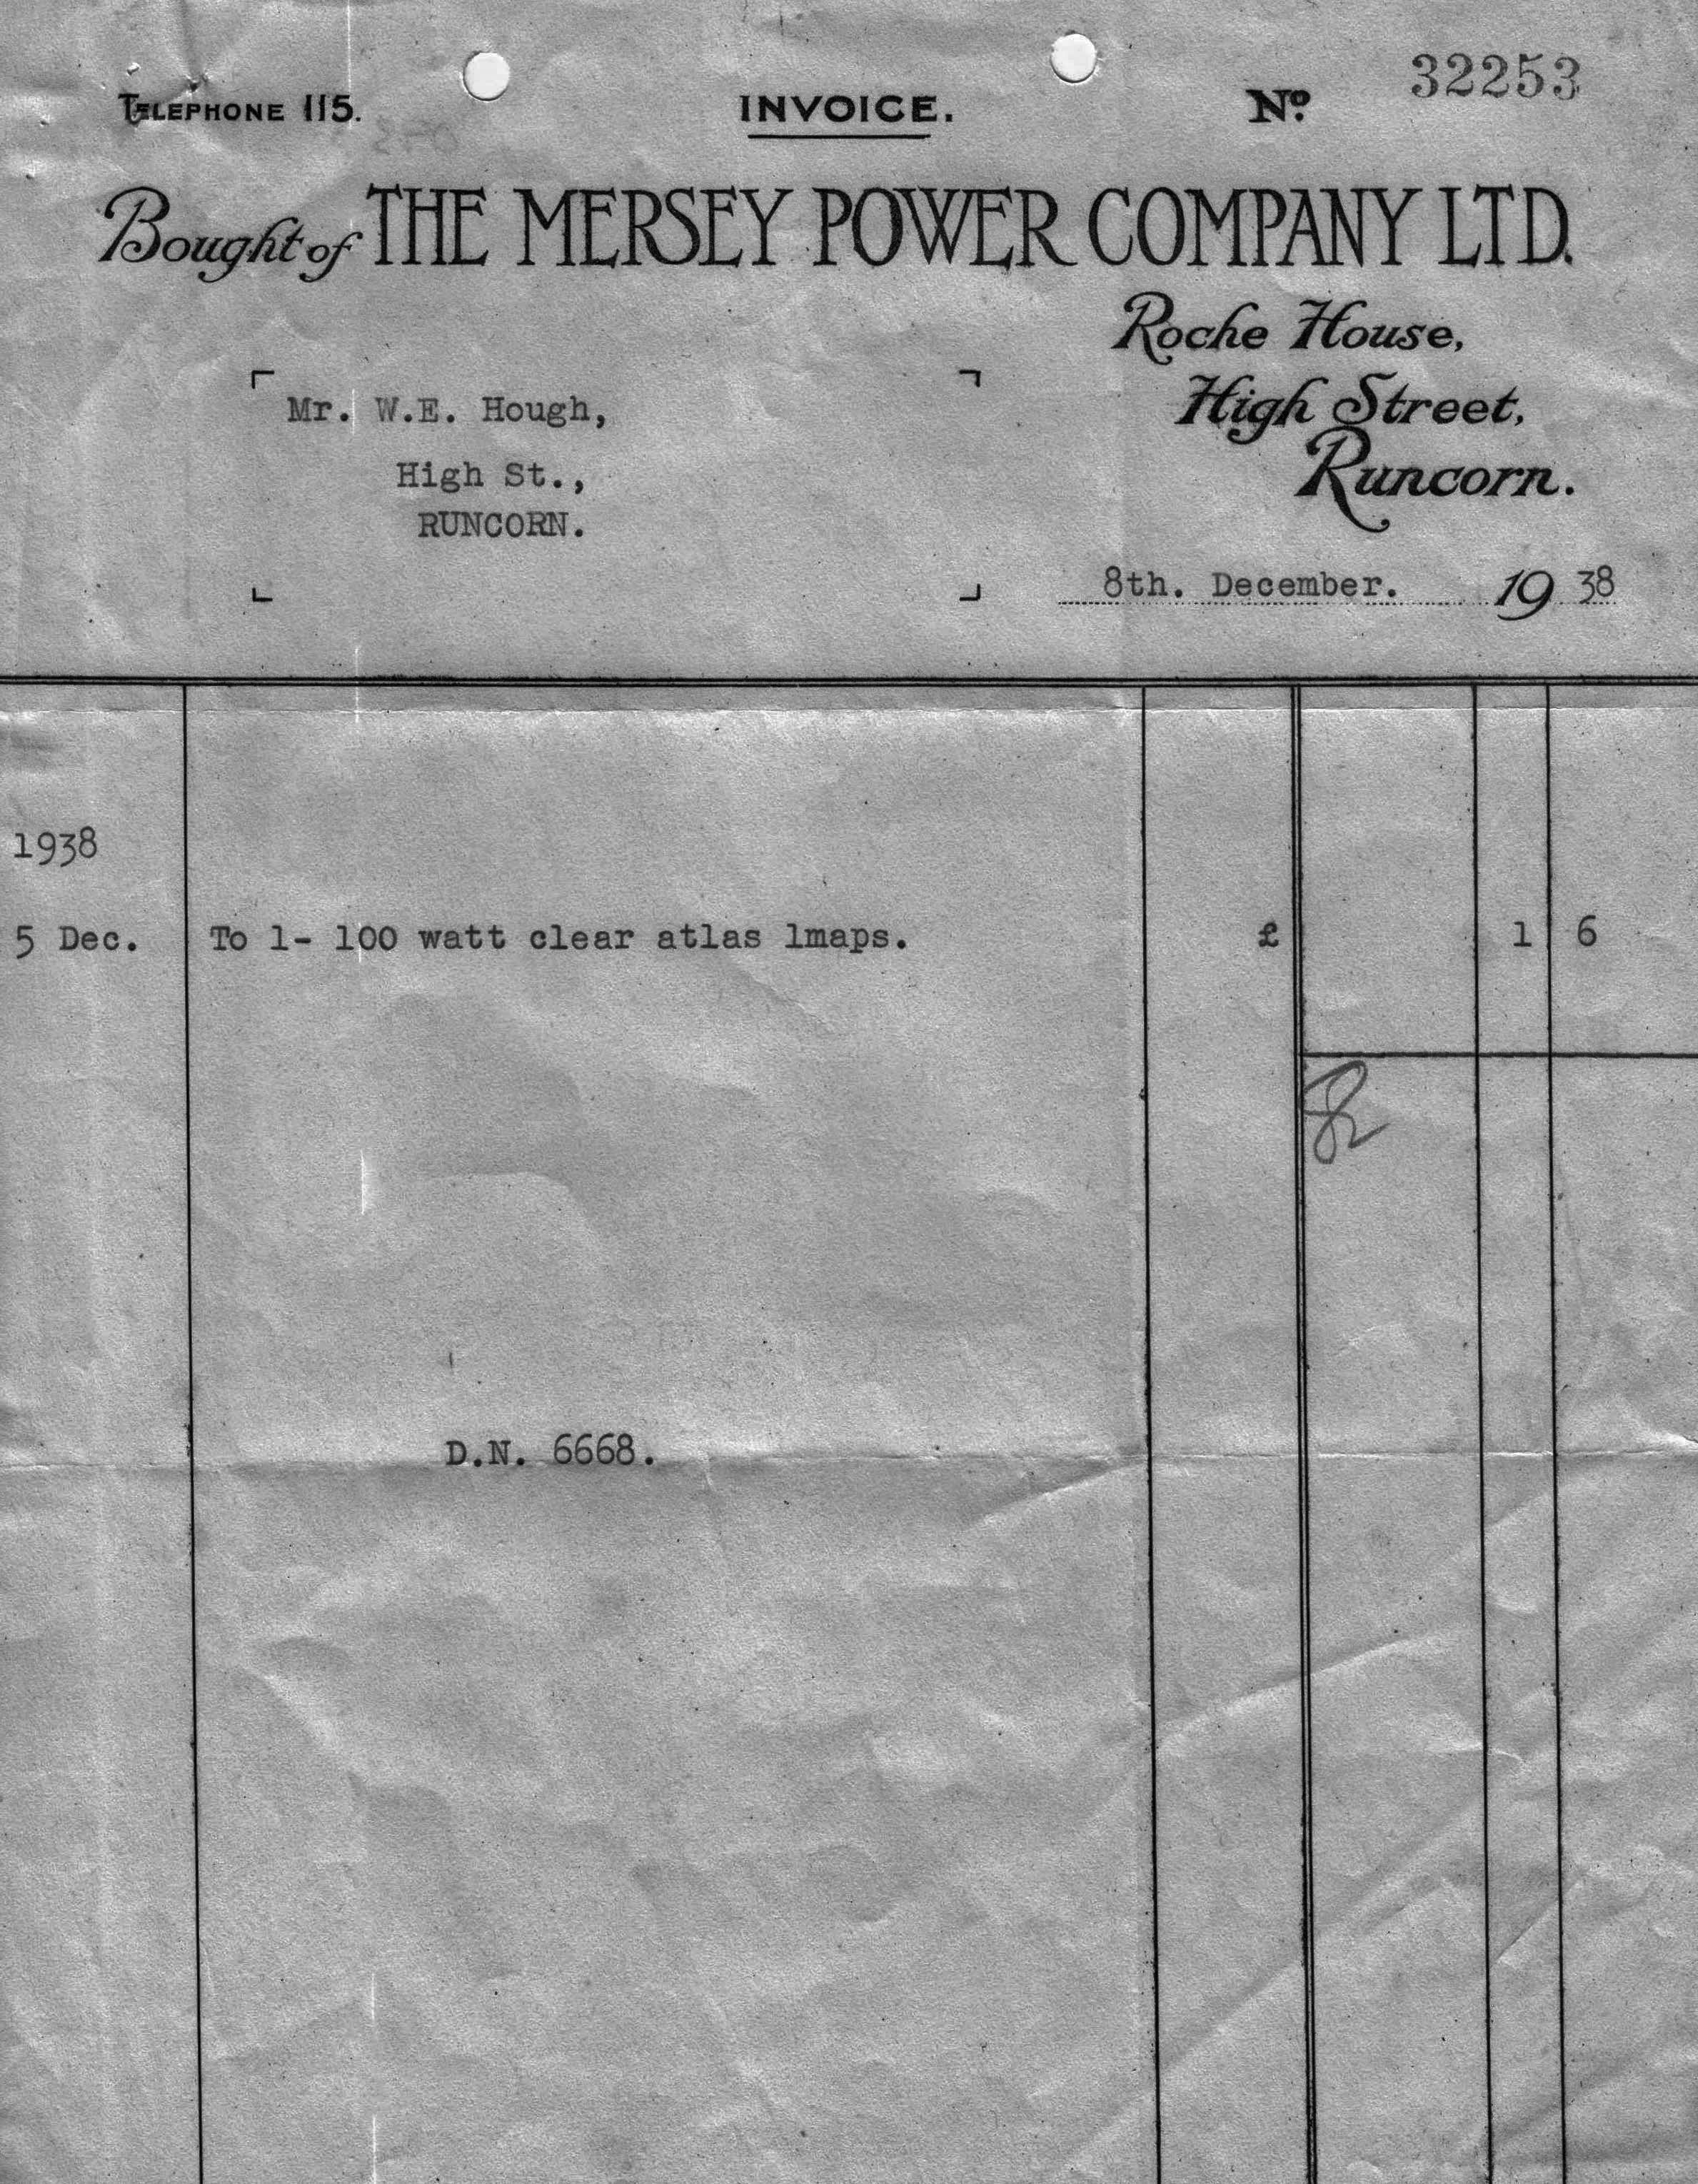 TELEPHONE 115.
INVOICE.
No. 32253
Bought of THE MERSEY POWER COMPANY LTD.
Roche House,
High Street,
Runcorn.
Mr. W.E. Hough,
High St.,
RUNCORN.
8th. December. 19 38
1938
5 Dec. To 1- 100 watt clear atlas lmaps. £ 1 6
D.N. 6668.